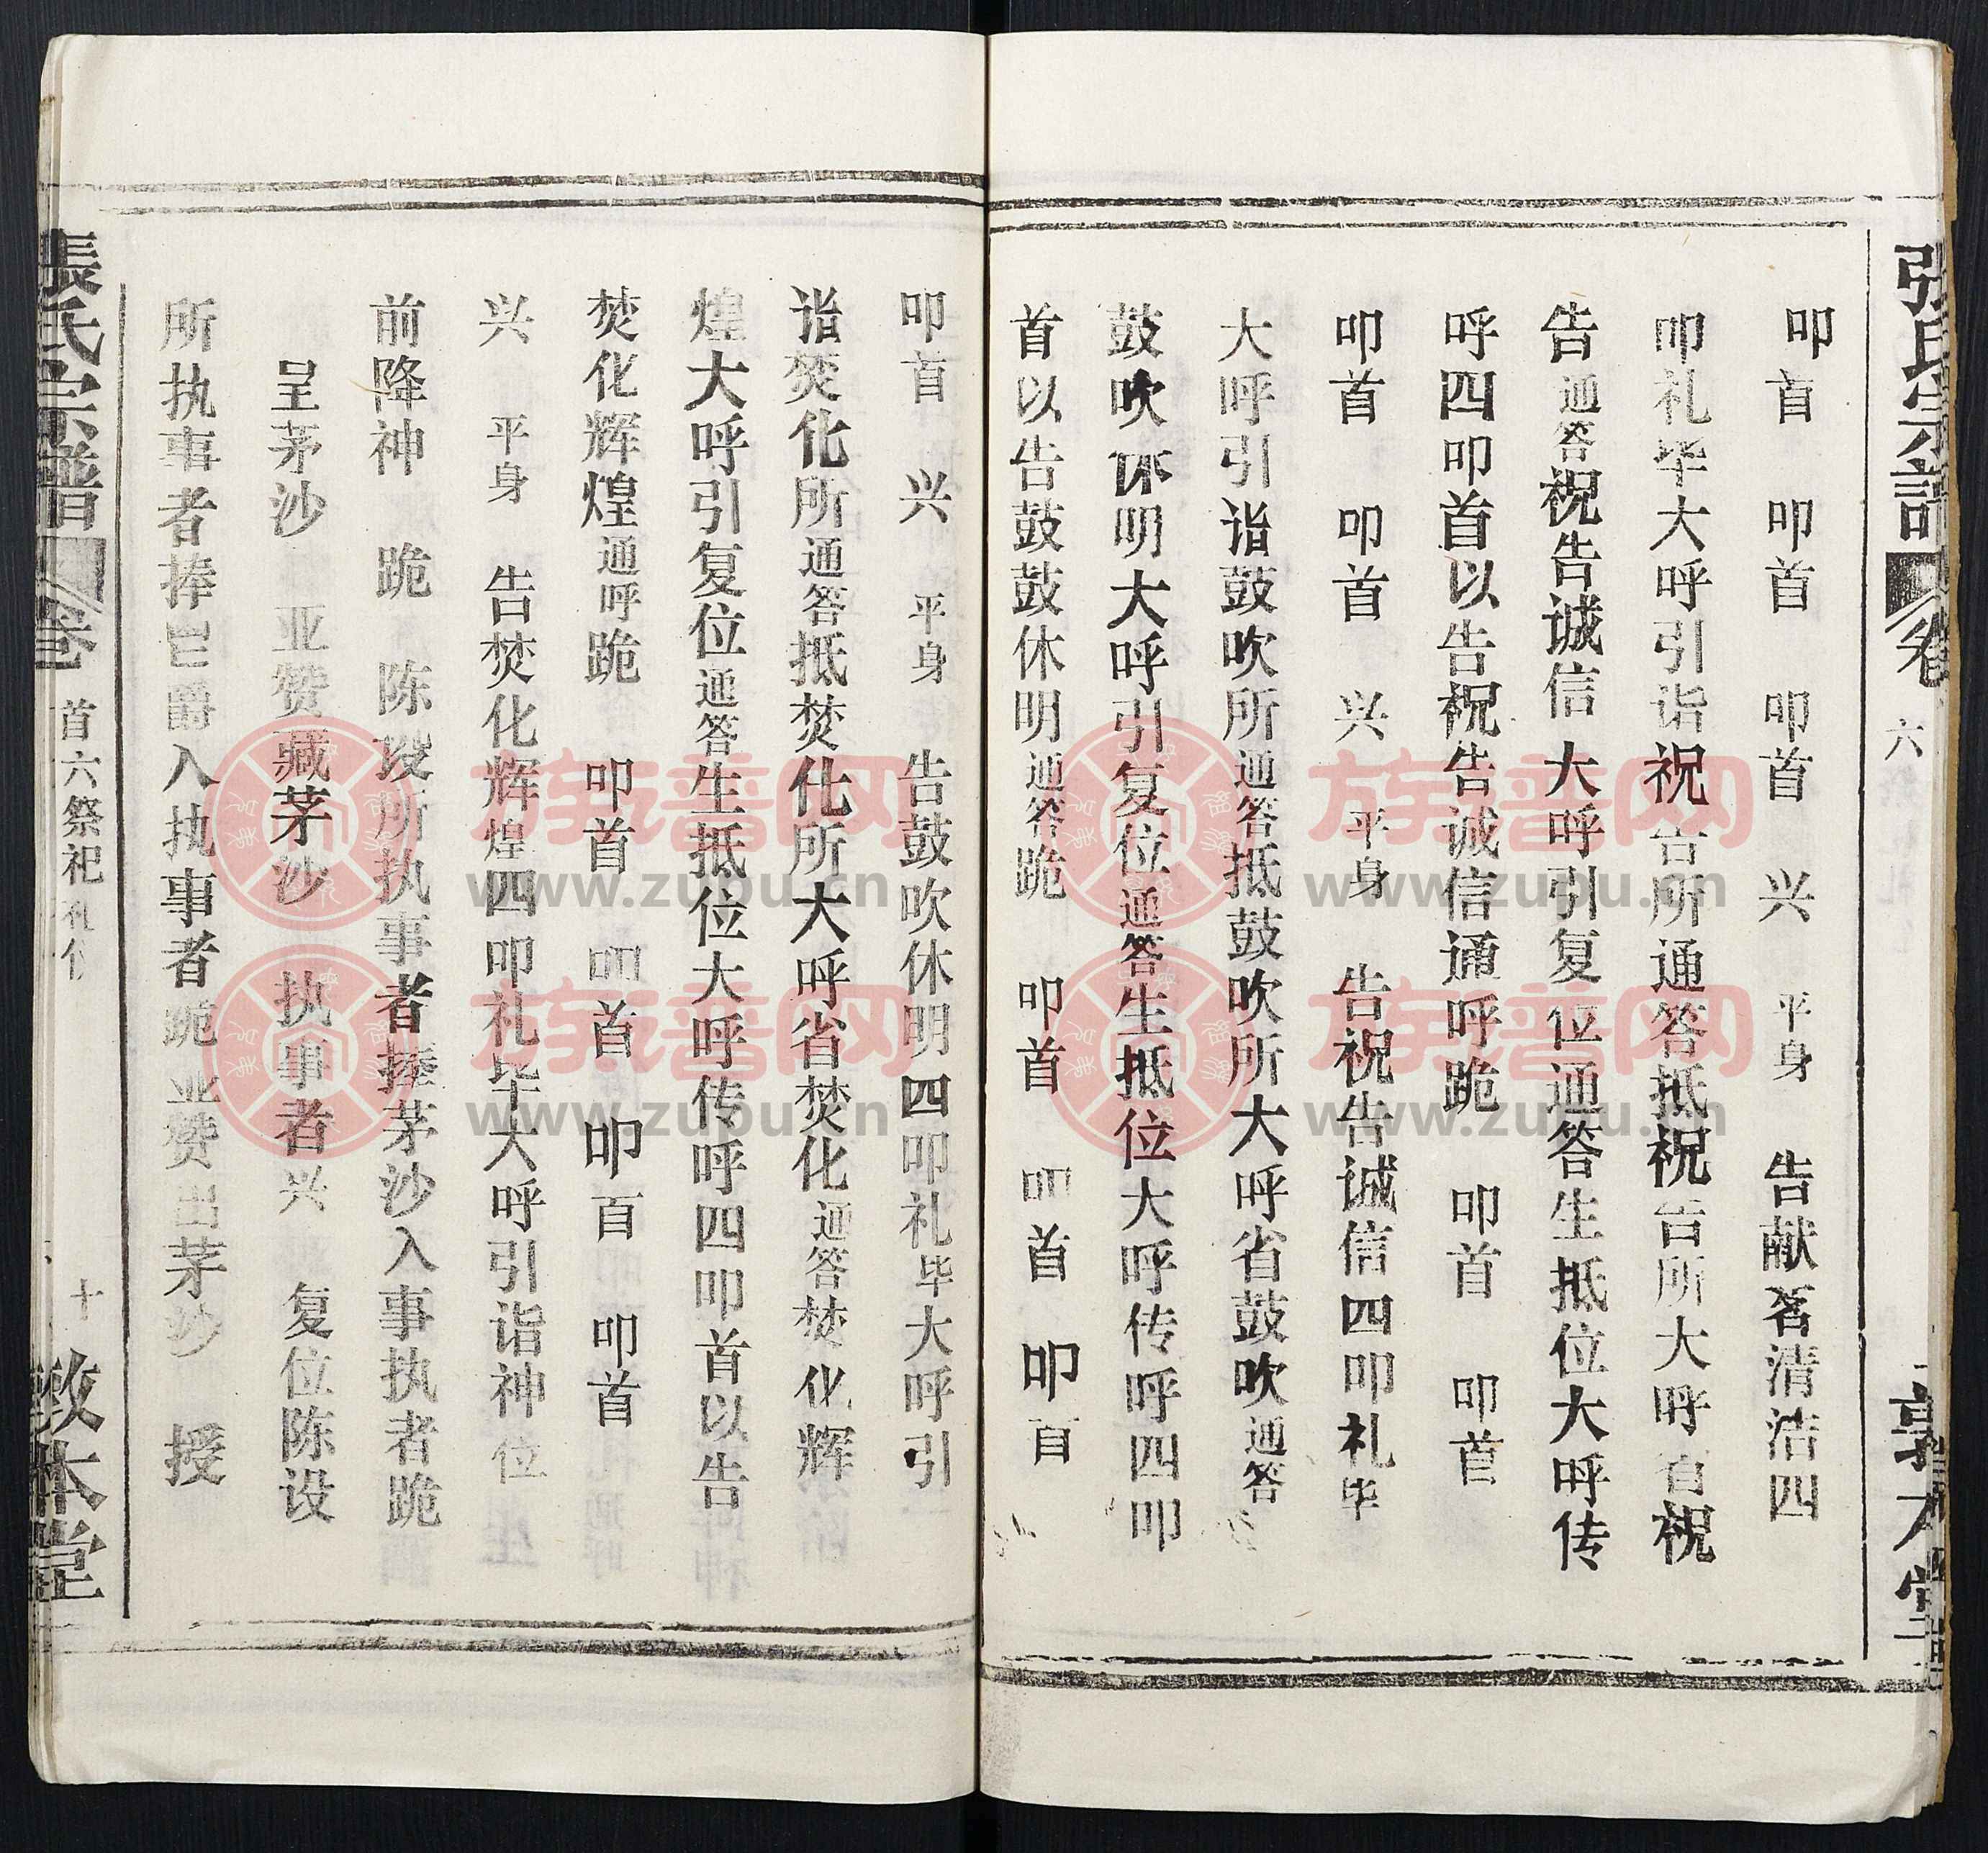 张氏宗譜 卷 六
叩首 叩首 叩首 兴 平身 告献茗清洁四
叩礼毕大呼引诣祝告所通答抵祝告所大呼省祝
告通答祝告诚信大呼引复位通答生抵位大呼传
呼四叩首以告祝告诚信通呼跪 叩首 叩首
叩首 叩首 兴 平身 告祝告诚信四叩礼毕
大呼引诣鼓吹所通答抵鼓吹所大呼省鼓吹通答
鼓吹休明大呼引复位通答生抵位大呼传呼四叩
首以告鼓鼓休明通答跪 叩首 叩首 叩百
叩首 兴 平身 告鼓吹休明四叩礼毕大呼引
诣焚化所通答抵焚化所大呼省焚化通答焚化辉
煌大呼引复位通答生抵位大呼传呼四叩首以告
焚化辉煌通呼跪 叩首 叩首 叩百 叩首
兴 平身 告焚化辉煌四叩礼毕大呼引诣神位
前降神 跪 陈设所执事者捧茅沙入事执者跪
呈茅沙 亚赞藏茅沙 执事者兴 复位陈设
所执事者捧爵入执事者跪亚赞出茅沙 授
張氏宗譜 卷 首六祭祀礼仪 十 敦本堂
族谱网
www.zupu.cn
族谱网
www.zupu.cn
族谱网
www.zupu.cn
族谱网
www.zupu.cn